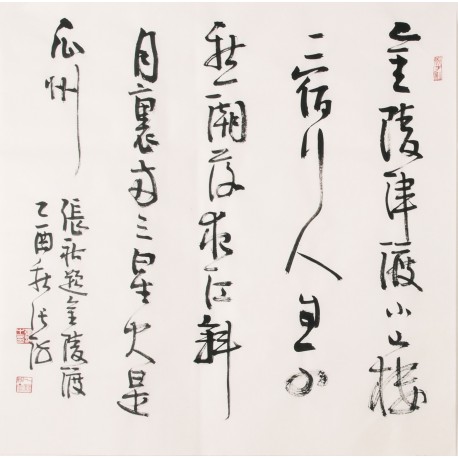 金陵津渡小山楼
一宿行人自可
愁潮落夜江斜
月裏两三星火是
瓜州
張祜题金陵渡
乙酉秋